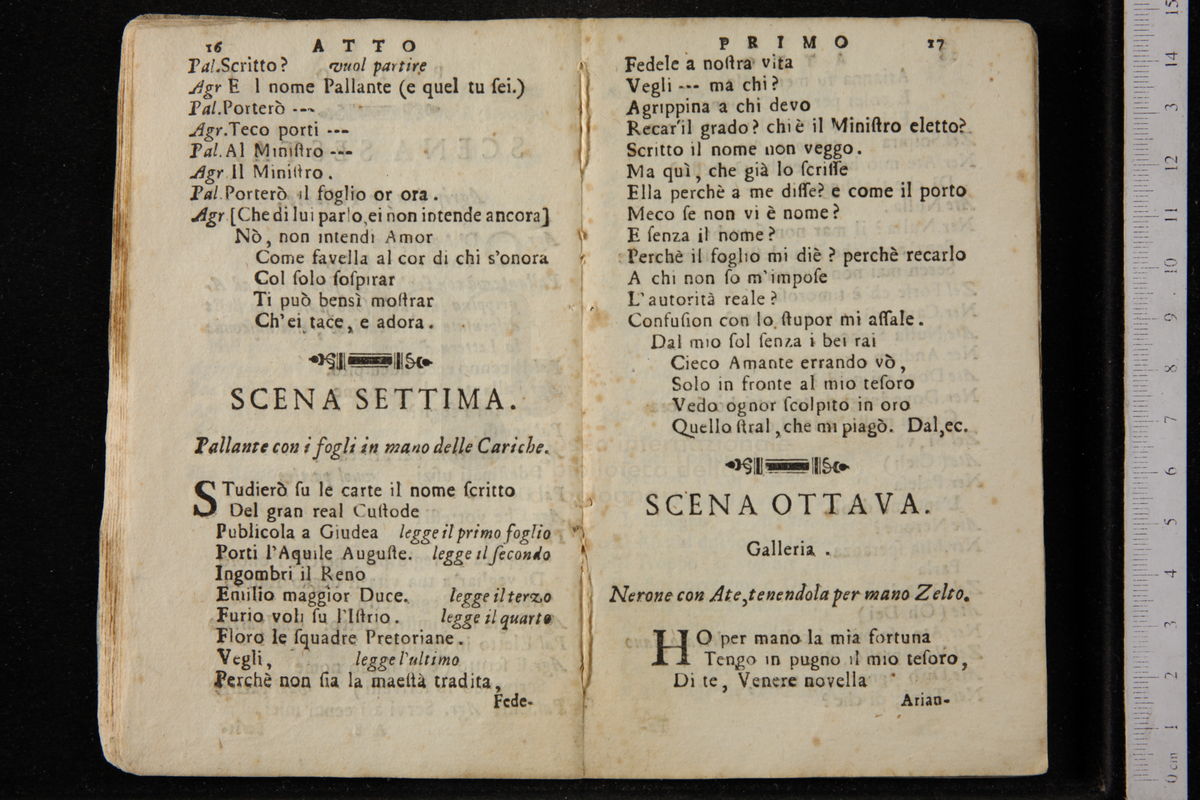 16 ATTO
Pal.Scritto? vuol partire
Agr E l nome Pallante (e quel tu ſei.)
Pal.Porterò ---
Agr.Teco porti ---
Pal.Al Miniſtro ---
Agr Il Miniſtro.
Pal.Porterò il foglio or ora.
Agr.[Che di lui parlo ei non intende ancora]
Nò, non intendi Amor
Come favella al cor di chi s'onora
Col ſolo ſoſpirar
Ti può bensì moſtrar
Ch'ei tace, e adora.
SCENA SETTIMA.
Pallante con i fogli in mano delle Cariche.
STudierò ſu le carte il nome ſcritto
Del gran real Cuſtode
Publicola a Giudea legge il primo foglio
Porti l'Aquile Auguſte. legge il ſecondo
Ingombri il Reno
Emilio maggior Duce. legge il terzo
Furio voli ſu l'Iſtrio. legge il quarto
Floro le ſquadre Pretoriane.
Vegli, legge l'ultimo
Perchè non ſia la maeſtà tradita,
Fede-
PRIMO 17
Fedele a noſtra vita
Vegli --- ma chi?
Agrippina a chi devo
Recar'il grado? chi è il Miniſtro eletto?
Scritto il nome non veggo.
Ma quì, che già lo ſcriſſe
Ella perchè a me diſſe? e come il porto
Meco ſe non vi è nome?
E ſenza il nome?
Perchè il foglio mi diè? perchè recarlo
A chi non ſo m'impoſe
L'autorità reale?
Confuſion con lo ſtupor mi aſſale.
Dal mio ſol ſenza i bei rai
Cieco Amante errando vò,
Solo in fronte al mio teſoro
Vedo ognor ſcolpito in oro
Quello ſtral, che mi piagò. Dal,ec.
SCENA OTTAVA.
Galleria.
Nerone con Ate,tenendola per mano Zelto.
HO per mano la mia fortuna
Tengo in pugno il mio teſoro,
Di te, Venere novella
Arian-